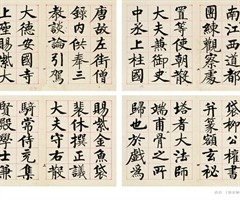 唐故左街僧
錄内供奉三
教談論引駕
大德安國寺
上座賜紫大
南江西道都
團練觀察處
置等使朝散
大夫兼御史
中丞上柱國
賜紫金魚袋
大夫守右散
騎常侍充集
賢殿學士兼
袋柳公權書
并篆額玄秘
塔者大法師
端甫骨之所
歸也於戲爲